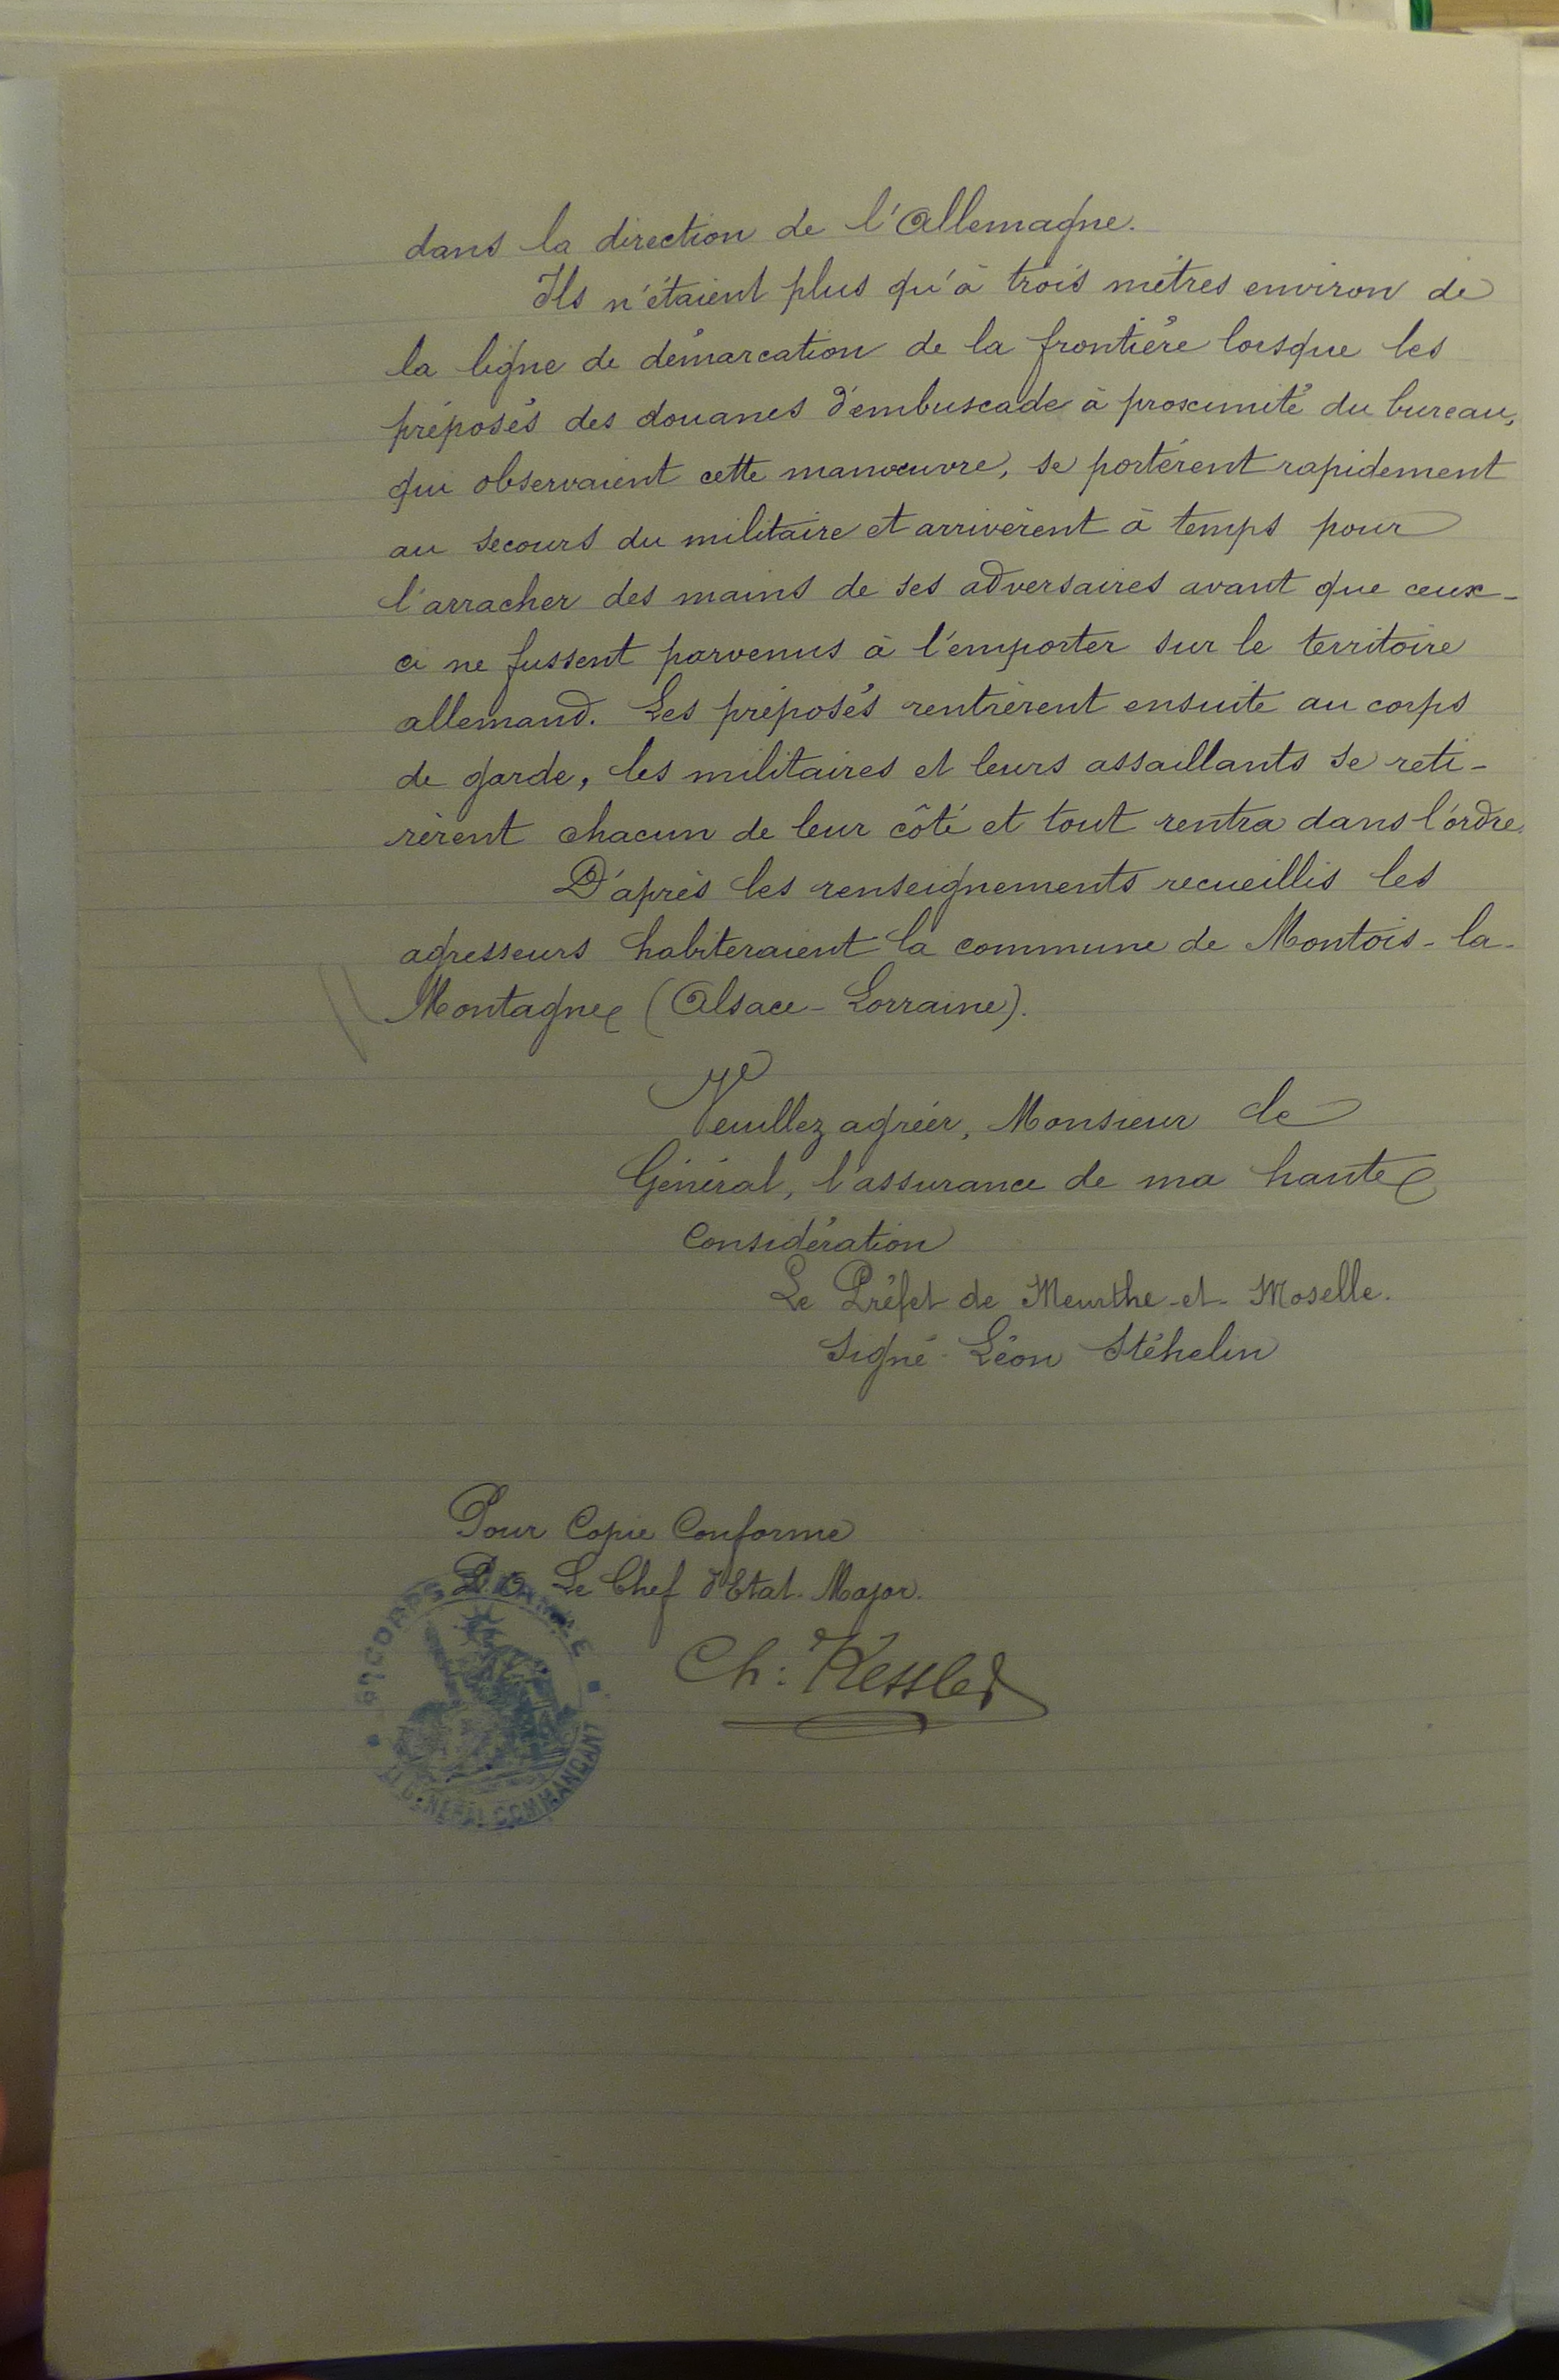 dans la direction de l'Allemagne.
Ils n'étaient plus qu'à trois mètres environ de
la ligne de démarcation de la frontière lorsque les
préposés des douanes d'embuscade à proximité du bureau,
qui observaient cette manœuvre, se portèrent rapidement
au secours du militaire et arrivèrent à temps pour
l'arracher des mains de ses adversaires avant que ceux-
ci ne fussent parvenus à l'emporter sur le territoire
allemand. Les préposés rentrèrent ensuite au corps
de garde, les militaires et leurs assaillants se reti-
rèrent chacun de leur côté et tout rentra dans l'ordre.
D'après les renseignements recueillis les
agresseurs habiteraient la commune de Montois-la-
Montagne (Alsace-Lorraine).
Veuillez agréer, Monsieur le
Général, l'assurance de ma haute
Considération
Le Préfet de Meurthe-et-Moselle.
Signé Léon Stéhelin
Pour Copie Conforme
P.O. Le Chef d'Etat-Major.
Ch: Kessler
CORPS D'ARMEE
LE GENERAL COMMANDANT